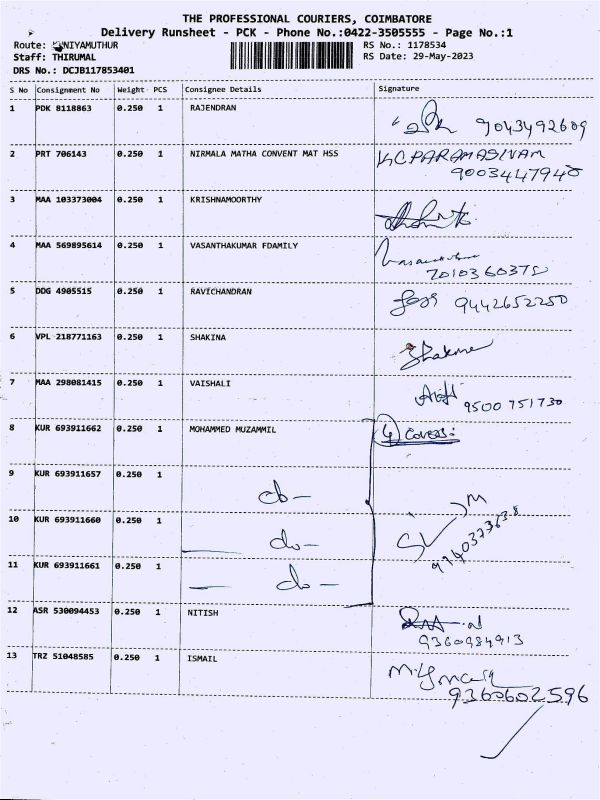 THE PROFESSIONAL COURIERS, COIMBATORE
Delivery Runsheet - PCK - Phone No.:0422-3505555 - Page No.:1
Route: KUNIYAMUTHUR RS No.: 1178534
Staff: THIRUMAL RS Date: 29-May-2023
DRS No.: DCJB117853401
S No Consignment No Weight PCS Consignee Details Signature
1 PDK 8118863 0.250 1 RAJENDRAN
9043492609
2 PRT 706143 0.250 1 NIRMALA MATHA CONVENT MAT HSS K.C PARAMASIVAM
9003447948
3 MAA 103373004 0.250 1 KRISHNAMOORTHY
4 MAA 569895614 0.250 1 VASANTHAKUMAR FDAMILY
7010360375
5 DDG 4905515 0.250 1 RAVICHANDRAN 9442652250
6 VPL 218771163 0.250 1 SHAKINA Shakina
7 MAA 298081415 0.250 1 VAISHALI
9500751730
8 KUR 693911662 0.250 1 MOHAMMED MUZAMMIL 4 COVERS:
9 KUR 693911657 0.250 1
do -
10 KUR 693911660 0.250 1
do -
11 KUR 693911661 0.250 1
do -
12 ASR 530094453 0.250 1 NITISH
9360984913
13 TRZ 51048585 0.250 1 ISMAIL
9360602596